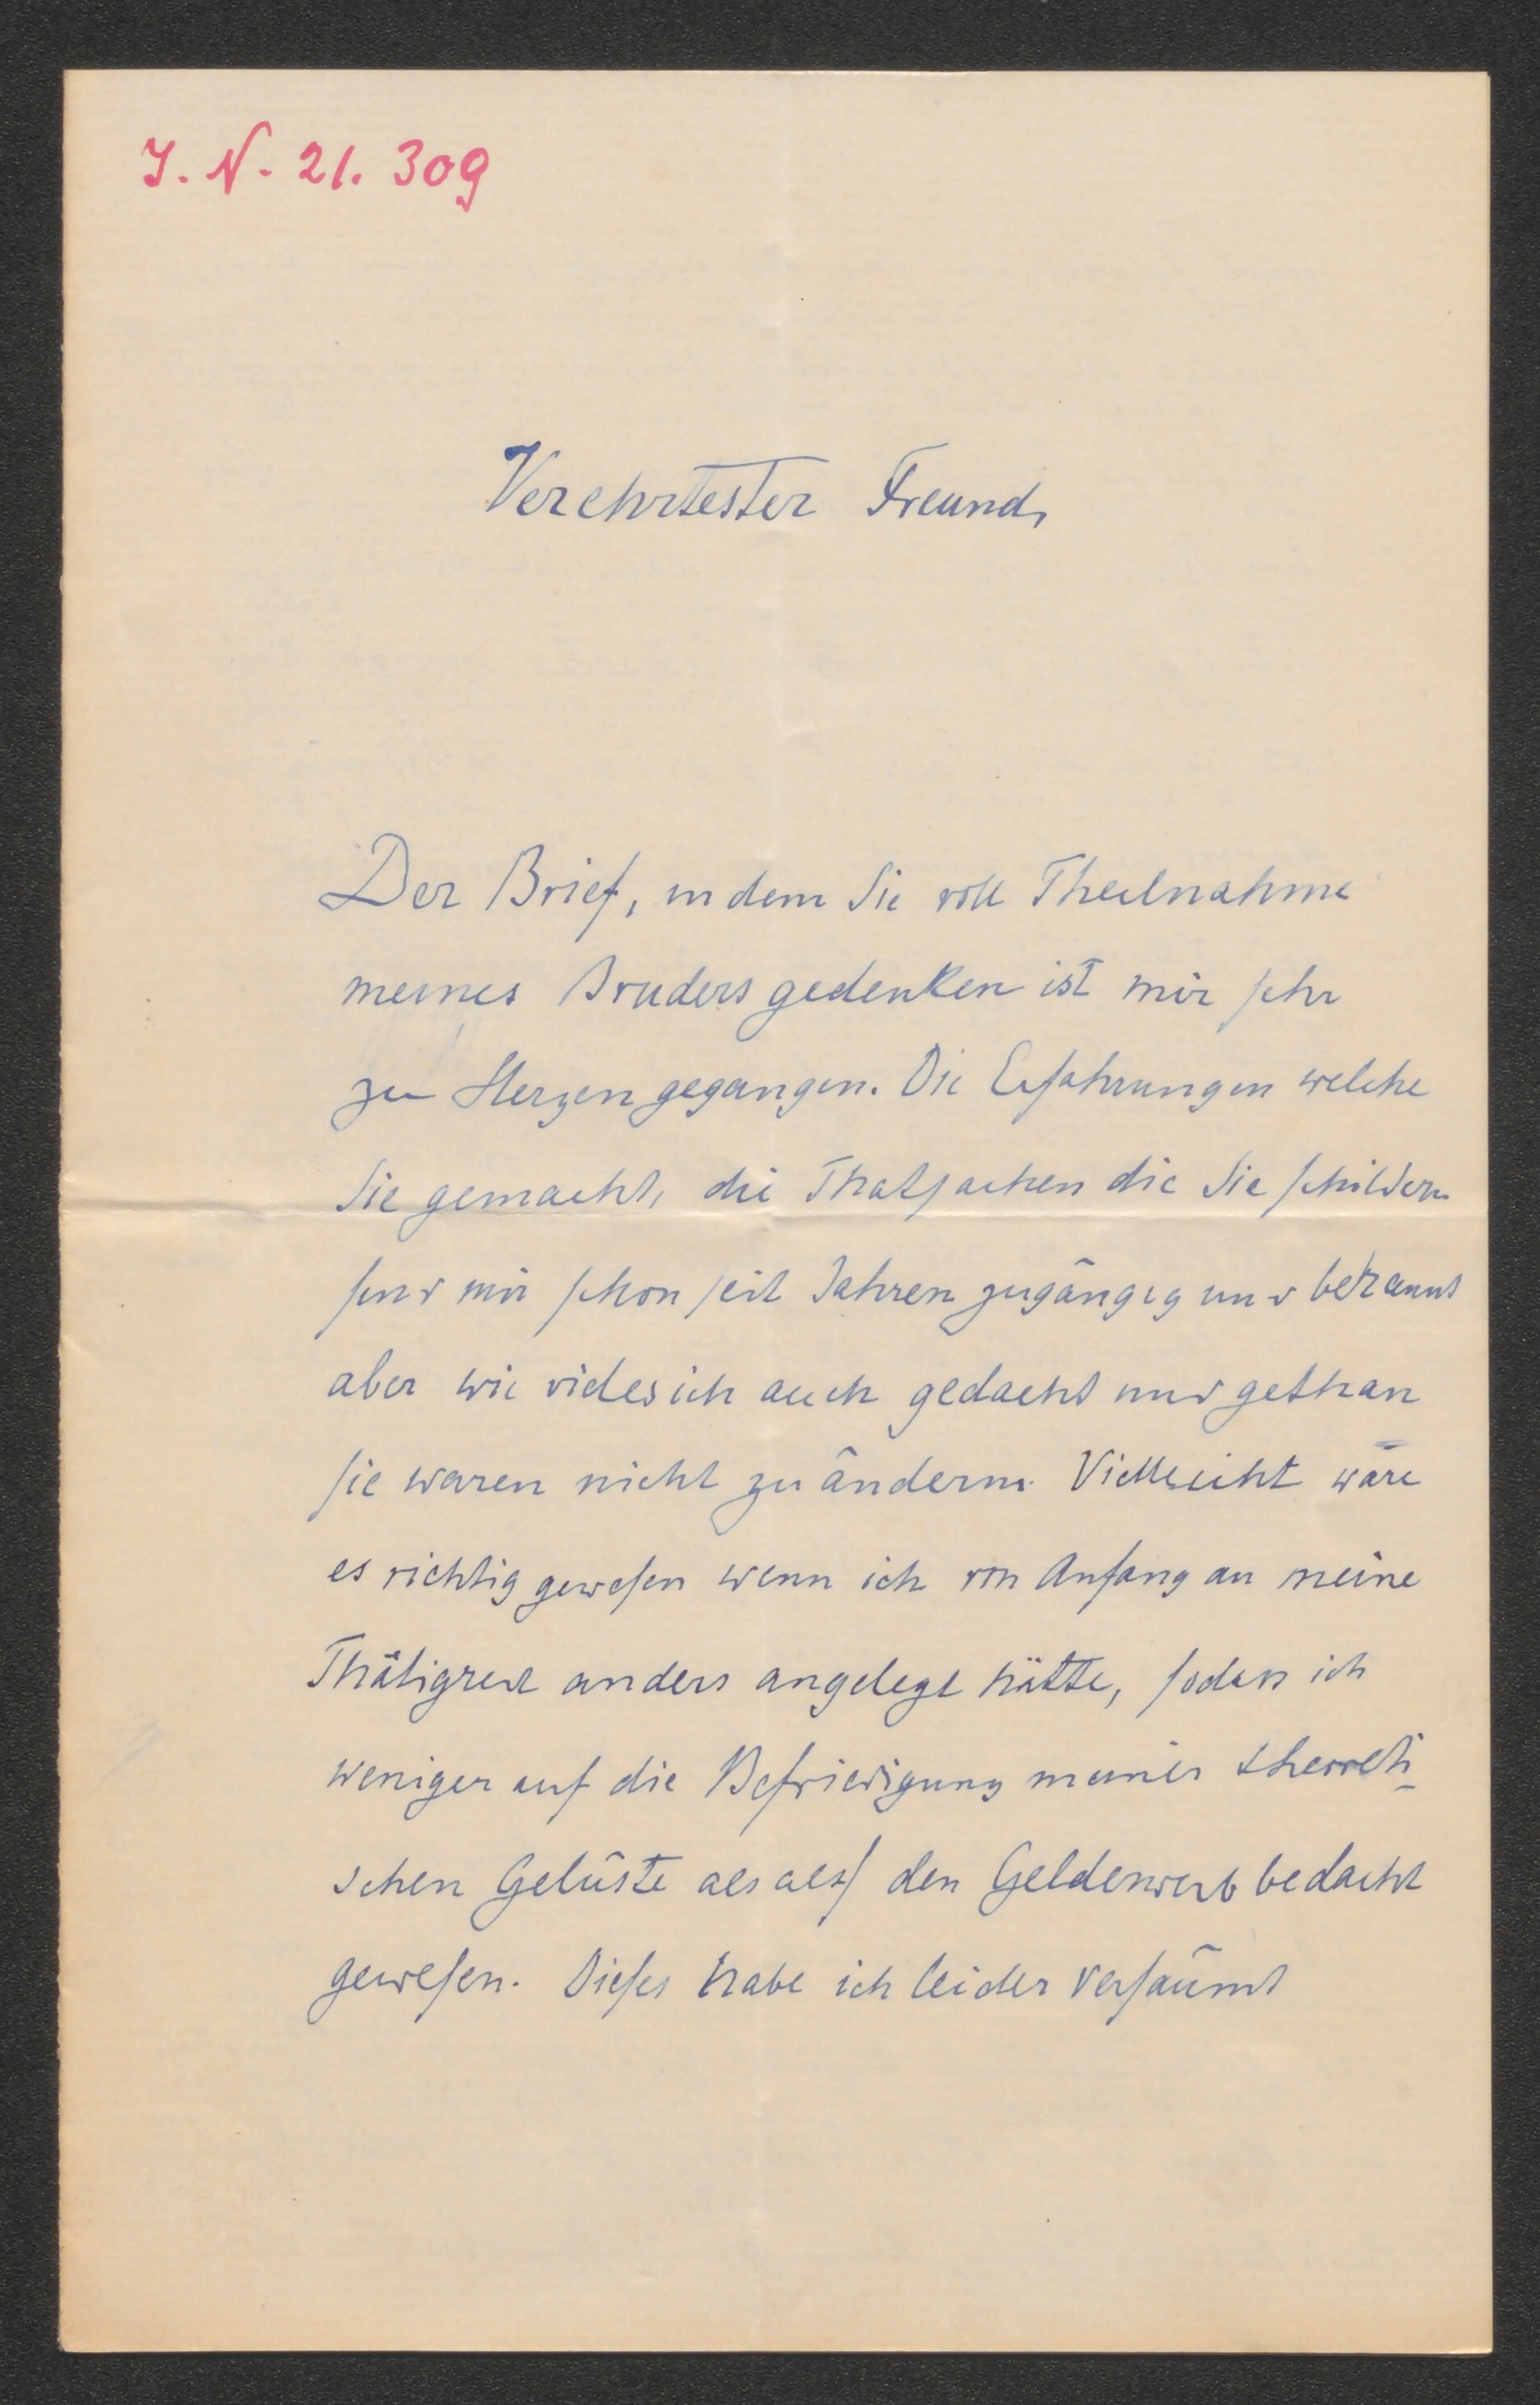 J. N. 21. 309
Verehrtester Freund,
Der Brief, in dem Sie voll Theilnahme
meines Bruders gedenken ist mir sehr
zu Herzen gegangen. Die Erfahrungen welche
Sie gemacht, die Thatsachen die Sie schildern
sind mir schon seit Jahren zugängig und bekannt
aber wie vieles ich auch gedacht und gethan
sie waren nicht zu ändern. Vielleicht wäre
es richtig gewesen wenn ich von Anfang an meine
Thätigkeit anders angelegt hätte, sodass ich
weniger auf die Befriedigung meiner theoreti-
schen Gelüste als auf den Gelderwerb bedacht
gewesen. Dieses habe ich leider versäumt